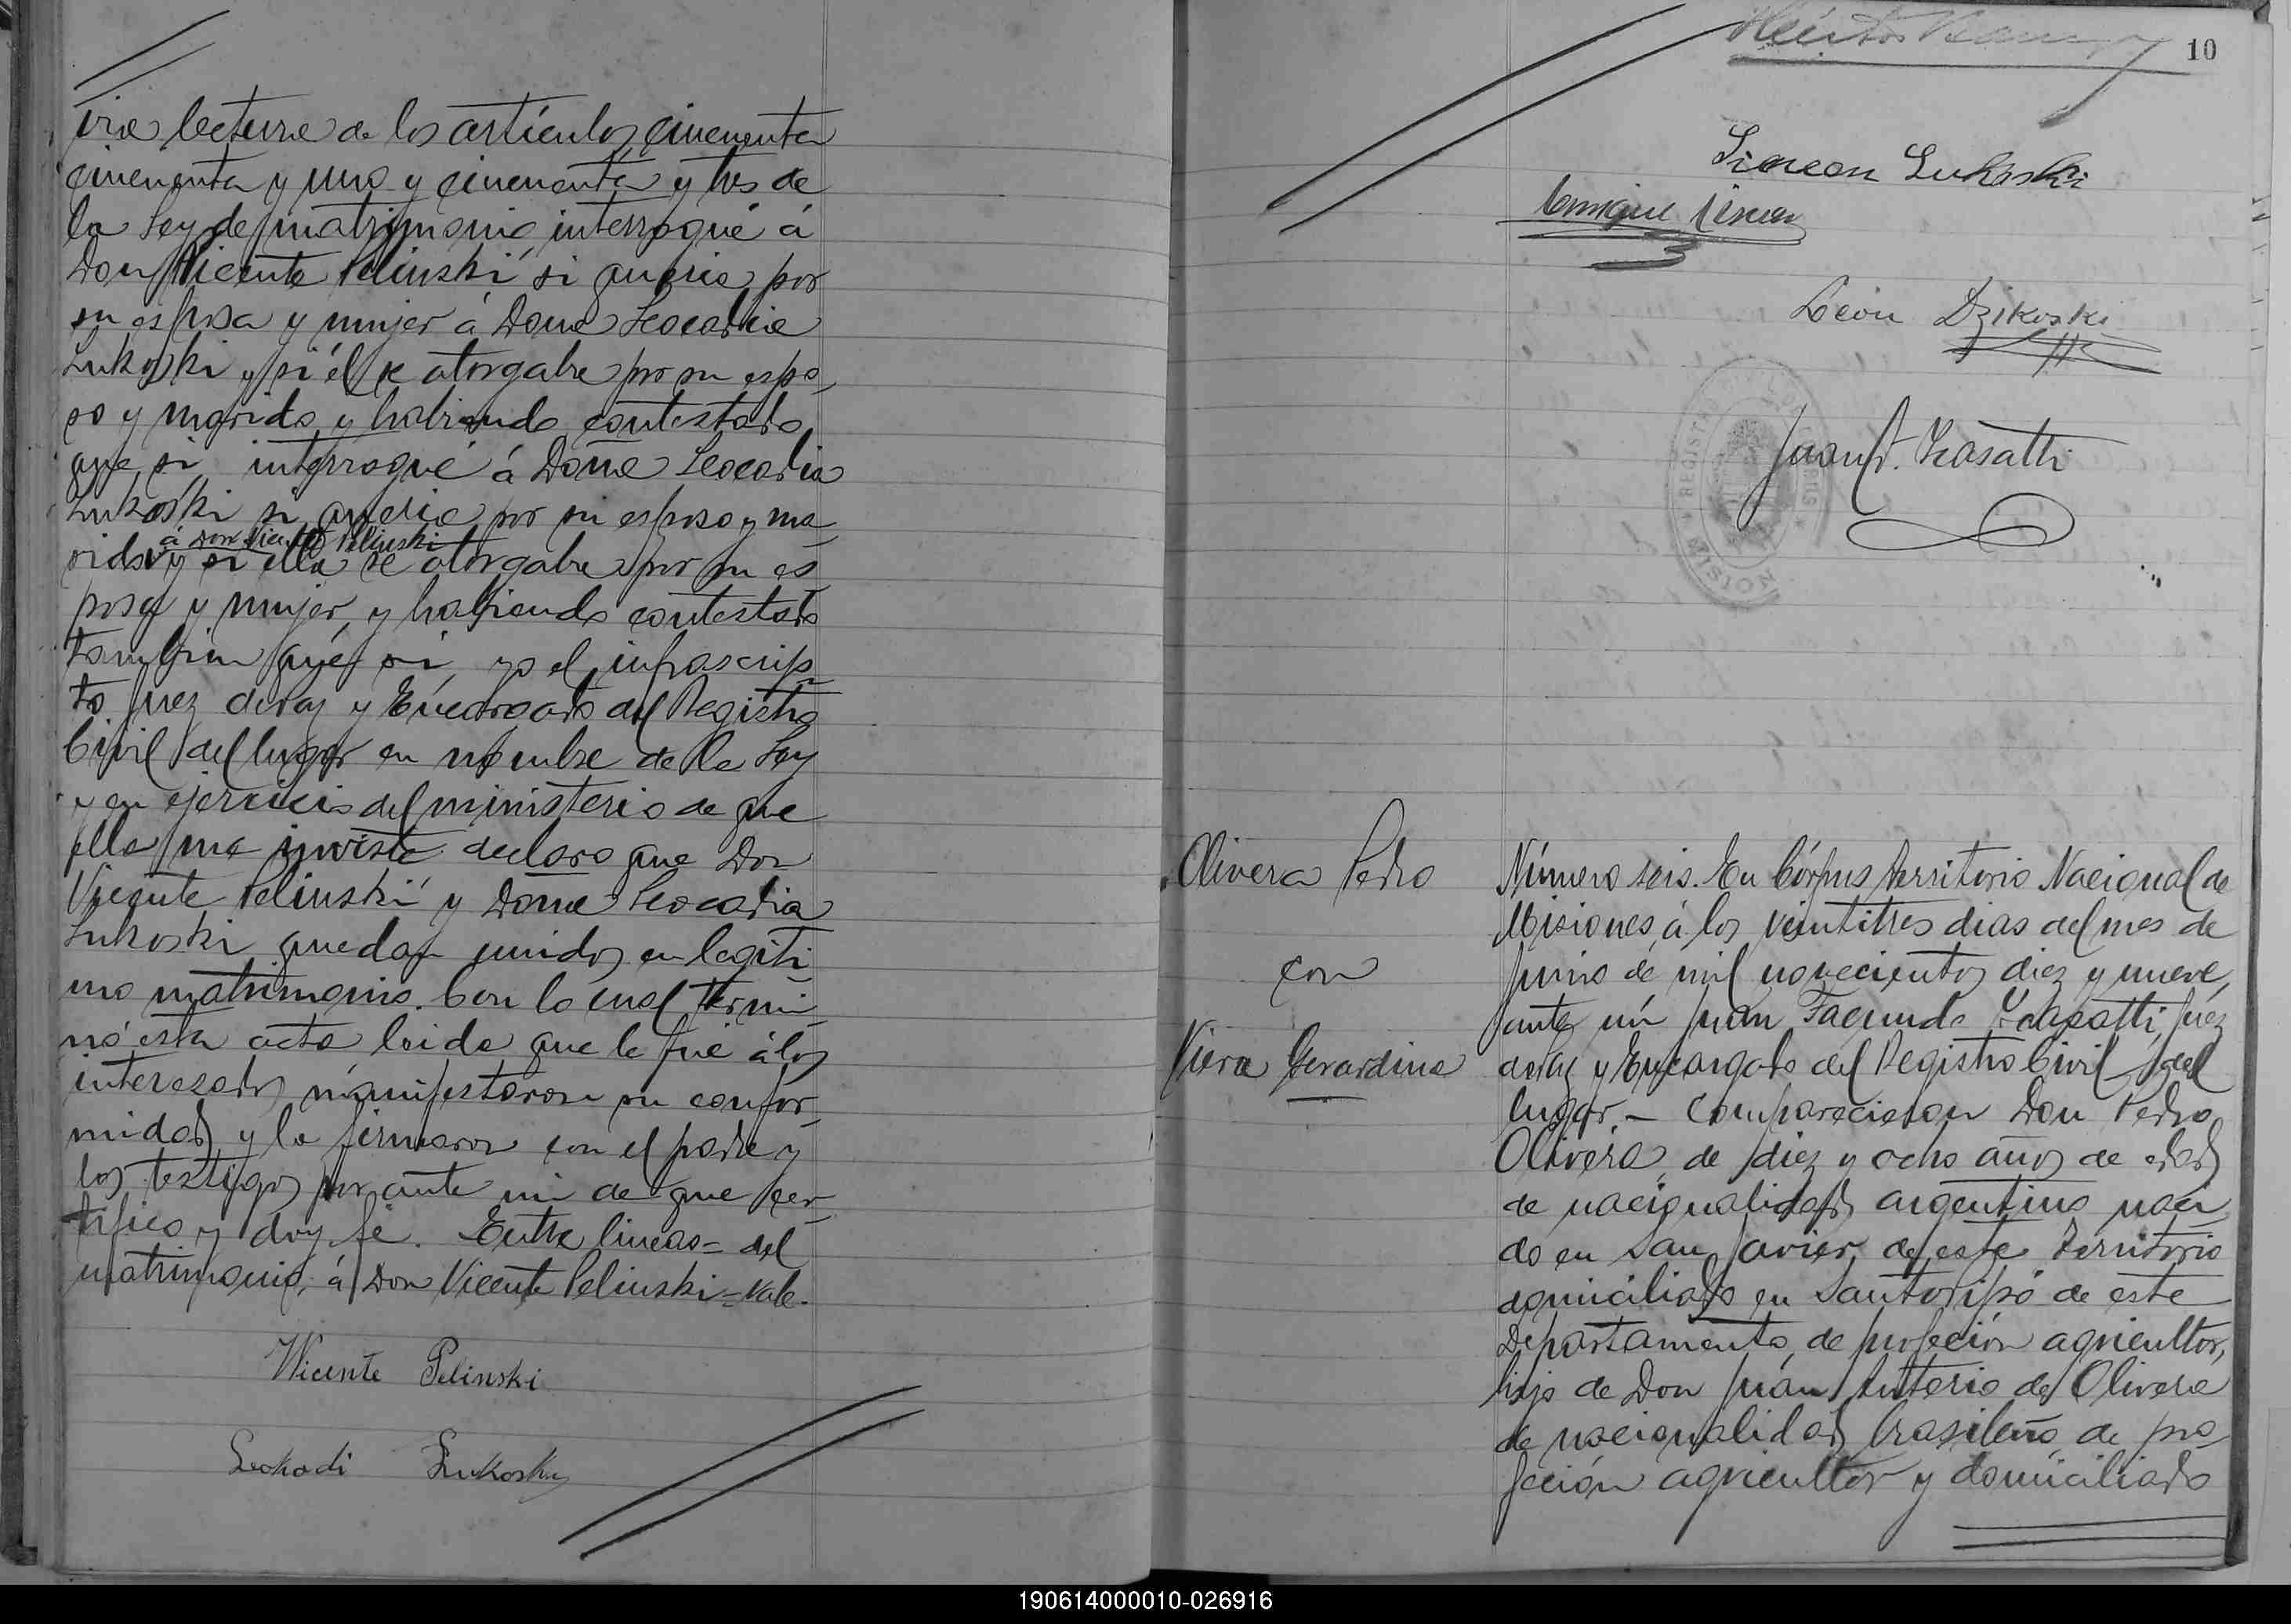 via lectura de los artículos cincuenta
cincuenta y uno y cincuenta y tres de
la Ley de matrimonio interrogué á
Don Vicente Pelinski si queria por
su esposa y mujer á Doña Leocadia
Lukoski y si él se otorgaba por su espo
so y marido y habiendo contestado
que si, interrogué á Doña Leocadia
Lukoski si queria por su esposo y ma
á Don Vicente Pelinski
rido y si ella se otorgaba por su es
posa y mujer, y habiendo contestado
tambien que si, yo el infrascrip
to Juez de Paz y Encargado del Registro
Civil del lugar en nombre de la Ley
y en ejercicio del ministerio de que
ella me inviste declaro que Don
Vicente Pelinski y Doña Leocadia
Lukoski quedan unidos en legiti
mo matrimonio. Con lo cual termi
nó esta acta leida que le fué á los
interesados manifestaron su confor
midad y la firmaron con el padre y
los testigos por ante mi de que cer
tifico y doy fé. Entre lineas = del
matrimonio, á Don Vicente Pelinski = Vale.
Wicente Pelinski
Leokadi Lukosky
10
Simean Lukoski
Enrique
León Dzikoski
REGISTRO CIVIL
MISIONES
Juan F. Zcasatti
Olivera Pedro
con
Viera Gerardina
Número seis. En Córpus Territorio Nacional de
Misiones, á los veintitres dias del mes de
Junio de mil novecientos diez y nueve,
ante mi Juan Facundo Zcasatti, Juez
de Paz y Encargado del Registro Civil del
lugar. - Comparecieron Don Pedro
Olivera de diez y ocho años de edad
de nacionalidad argentino naci
do en San Javier de este Territorio
domiciliado en Santo Pipó de este
Departamento, de profeción agricultor,
hijo de Don Juan Anterio de Olivera
de nacionalidad brasileño de pro
feción agricultor y domiciliado
190614000010-026916